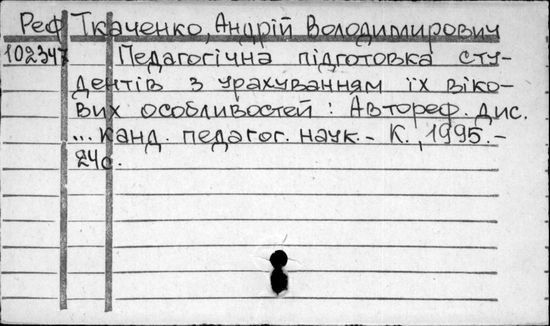 Реф Ткаченко, Андрій Володимирович
102347 Педагогічна підготовка сту-
дентів з урахуванням їх віко-
вих особливостей : Автореф. дис.
... канд. педагог. наук. - К., 1995. -
24с.